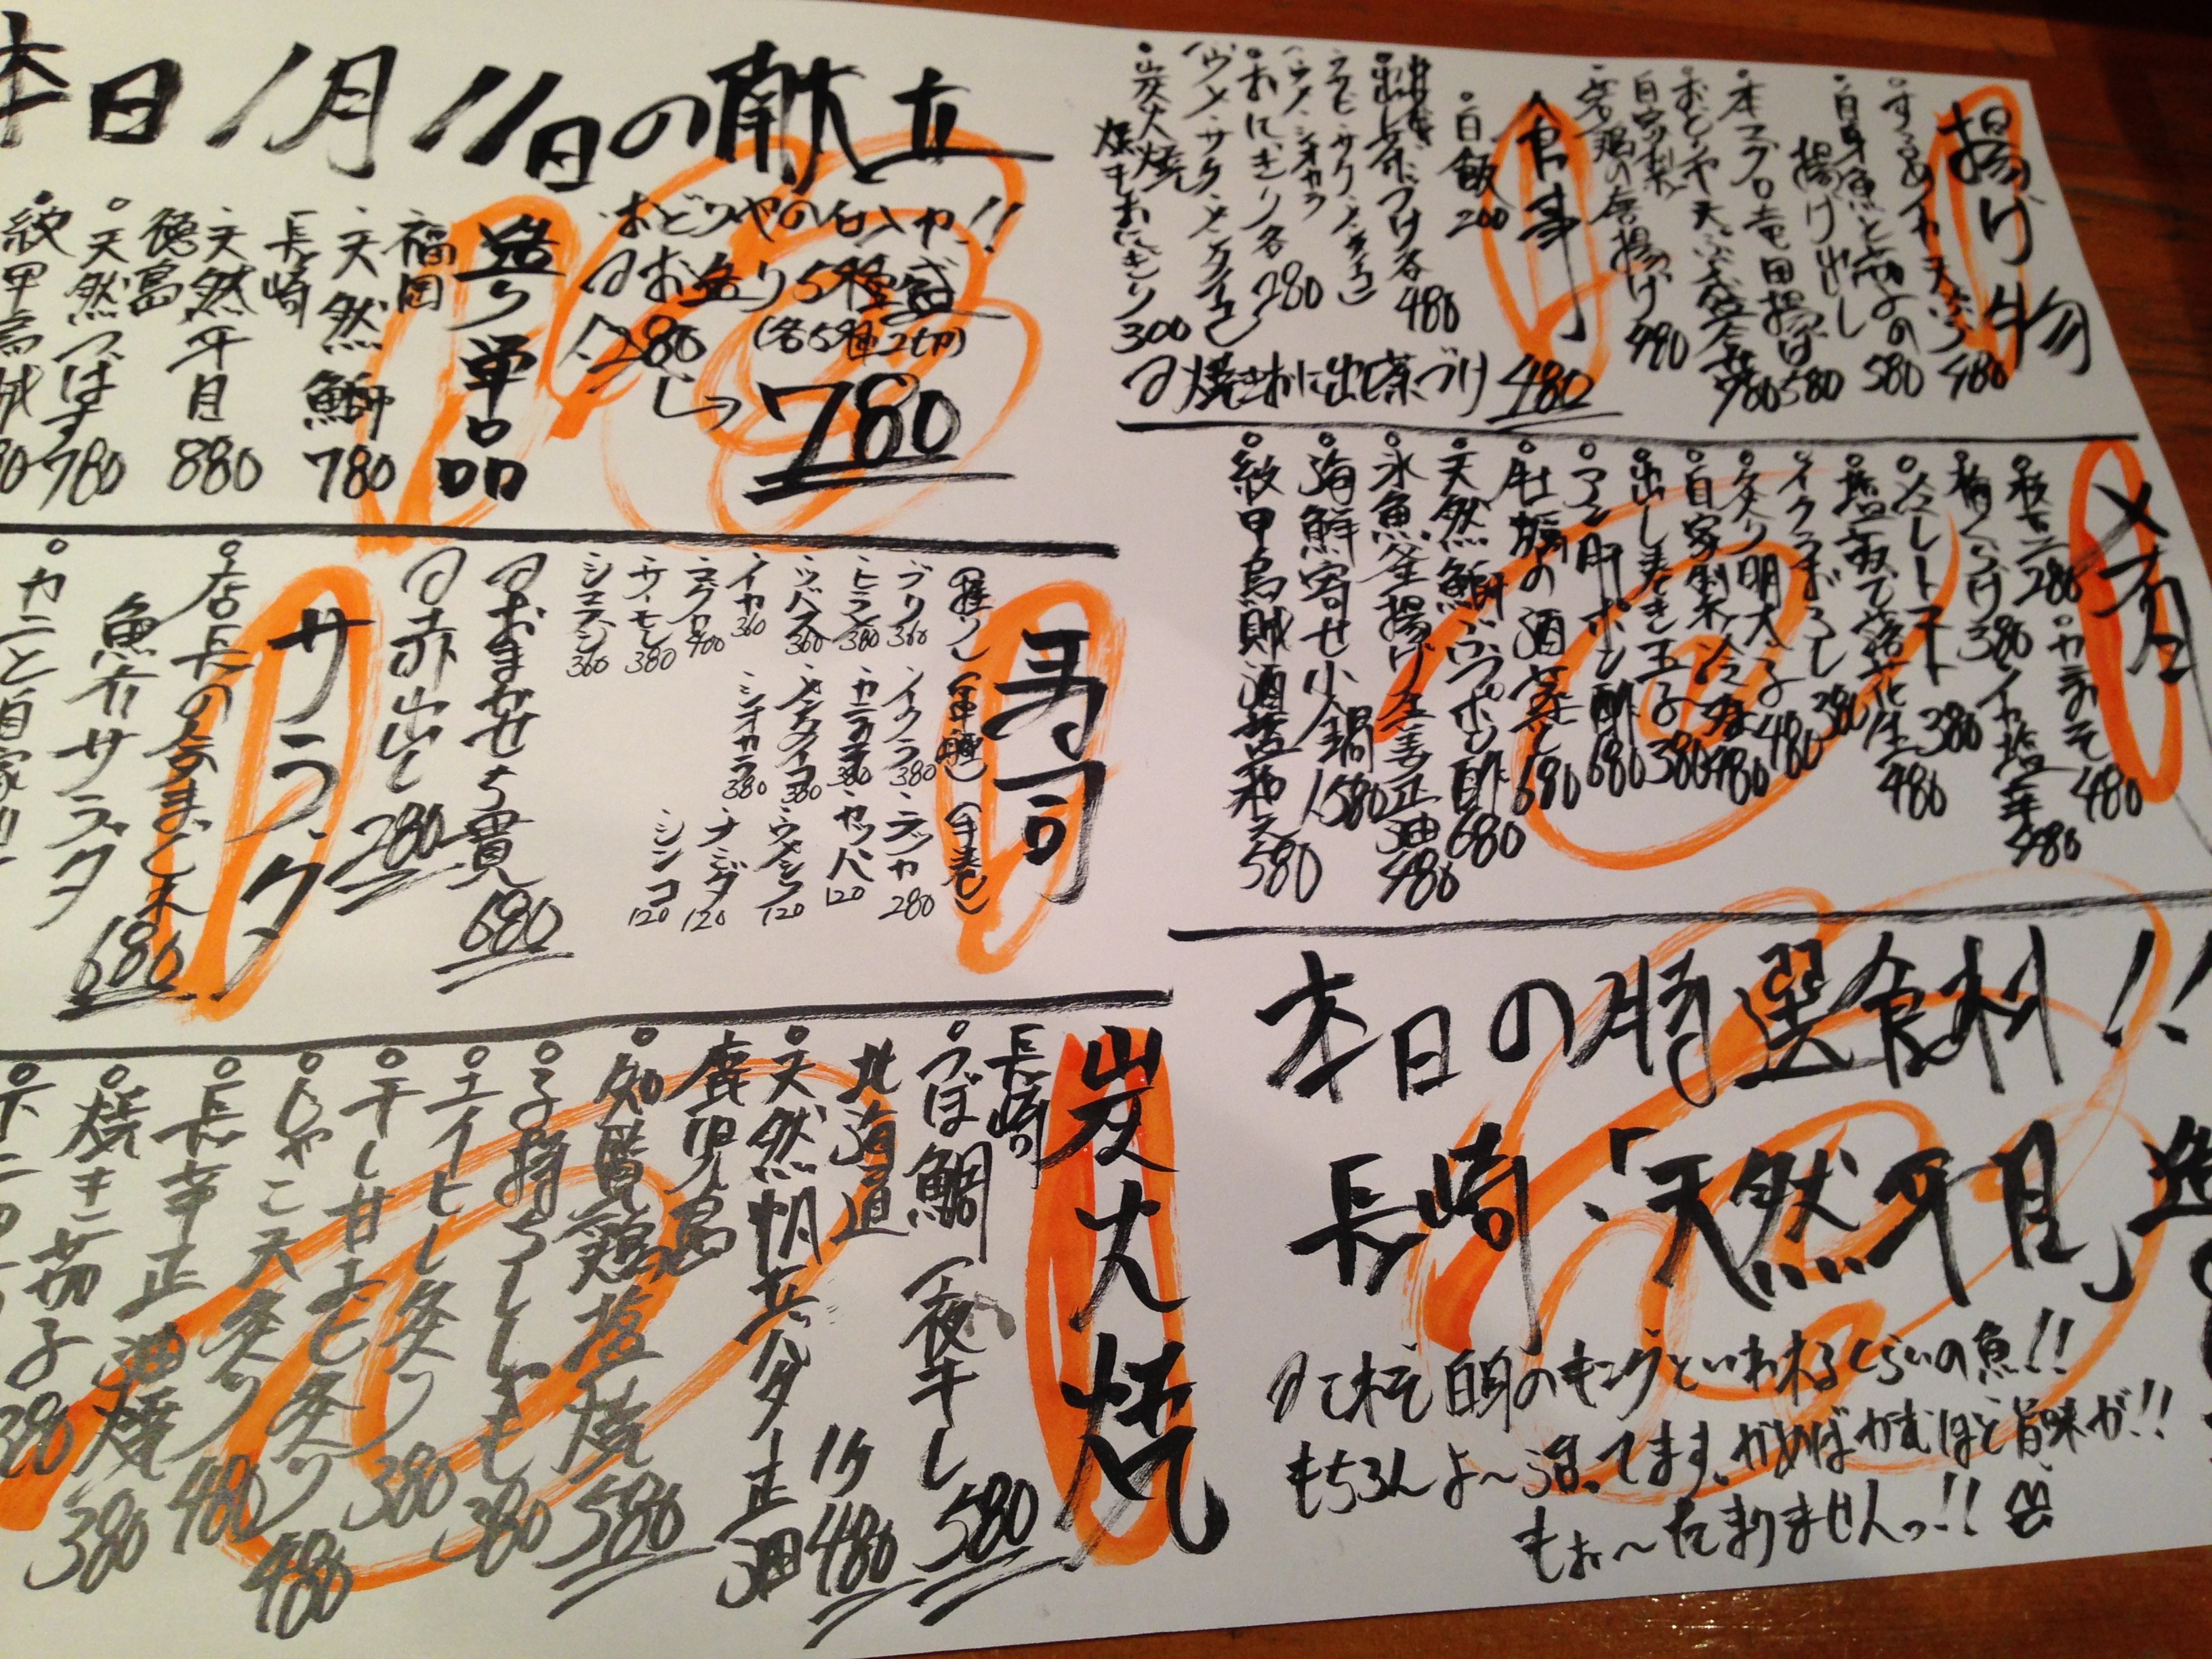 本日1月11日の献立
おどりやの
お造り5種盛
1280 (各5種2切)
780
造り単品
福岡
・天然鰤 780
長崎
・天然平目 880
徳島
天然つばす 780
紋甲烏賊
寿司
(握り) (軍艦) (手巻)
・ブリ 360 ・イクラ 380 ・テッカ 280
・ヒラメ 380
・ツバス 360 ・メンタイコ 380 ・ウメシソ 120
・イカ 360 ・シオカラ 380 ・ナミダ 120
・マグロ 400 ・シンコ 120
・サーモン 380
おまかせ5貫 680
赤出し 280
サラダ
店長の
魚介サラダ 680
カニと自家製
炭火焼
長崎
つぼ鯛一夜干し 580
北海道
天然帆立バター正油 1ケ 480
鹿児島
知覧鶏塩焼 580
子持ちししゃも 380
エイヒレ炙り 380
干し甘エビ炙り 480
じゃこ天炙り 480
長芋正油焼 380
焼き茄子 380
揚げ物
するめイカ天ぷら 480
白身魚と茄子の
揚げ出し 580
本マグロ竜田揚げ 580
おどりや天ぷら盛合せ 980
自家製
若鶏の唐揚げ 480
食事
白飯 200
出し茶づけ各 480
おにぎり各 280
・ウメ・サケ・メンタイコ
炭火焼
焼きおにぎり 300
焼きおに出し茶づけ 480
〆肴
枝豆 280
梅くらげ 380 イカ塩辛 480
冷しトマト 380
塩ゆで落花生 480
イクラおろし 380
炙り明太子 480
自家製
出し巻き玉子 380
アン肝ポン酢 680
牡蠣の酒蒸し 680
天然鰤ぶつポン酢 680
氷魚釜揚げ生姜正油 480
海鮮寄せ小鍋 1580
紋甲烏賊酒盗和え 580
本日の特選食材!!
長崎・「天然平目」造
これぞ白身のキングといわれるくらいの魚!!
もちろんよ〜活ってます。かめばかむほど旨味が!!
もぉ〜たまりませんっ!!